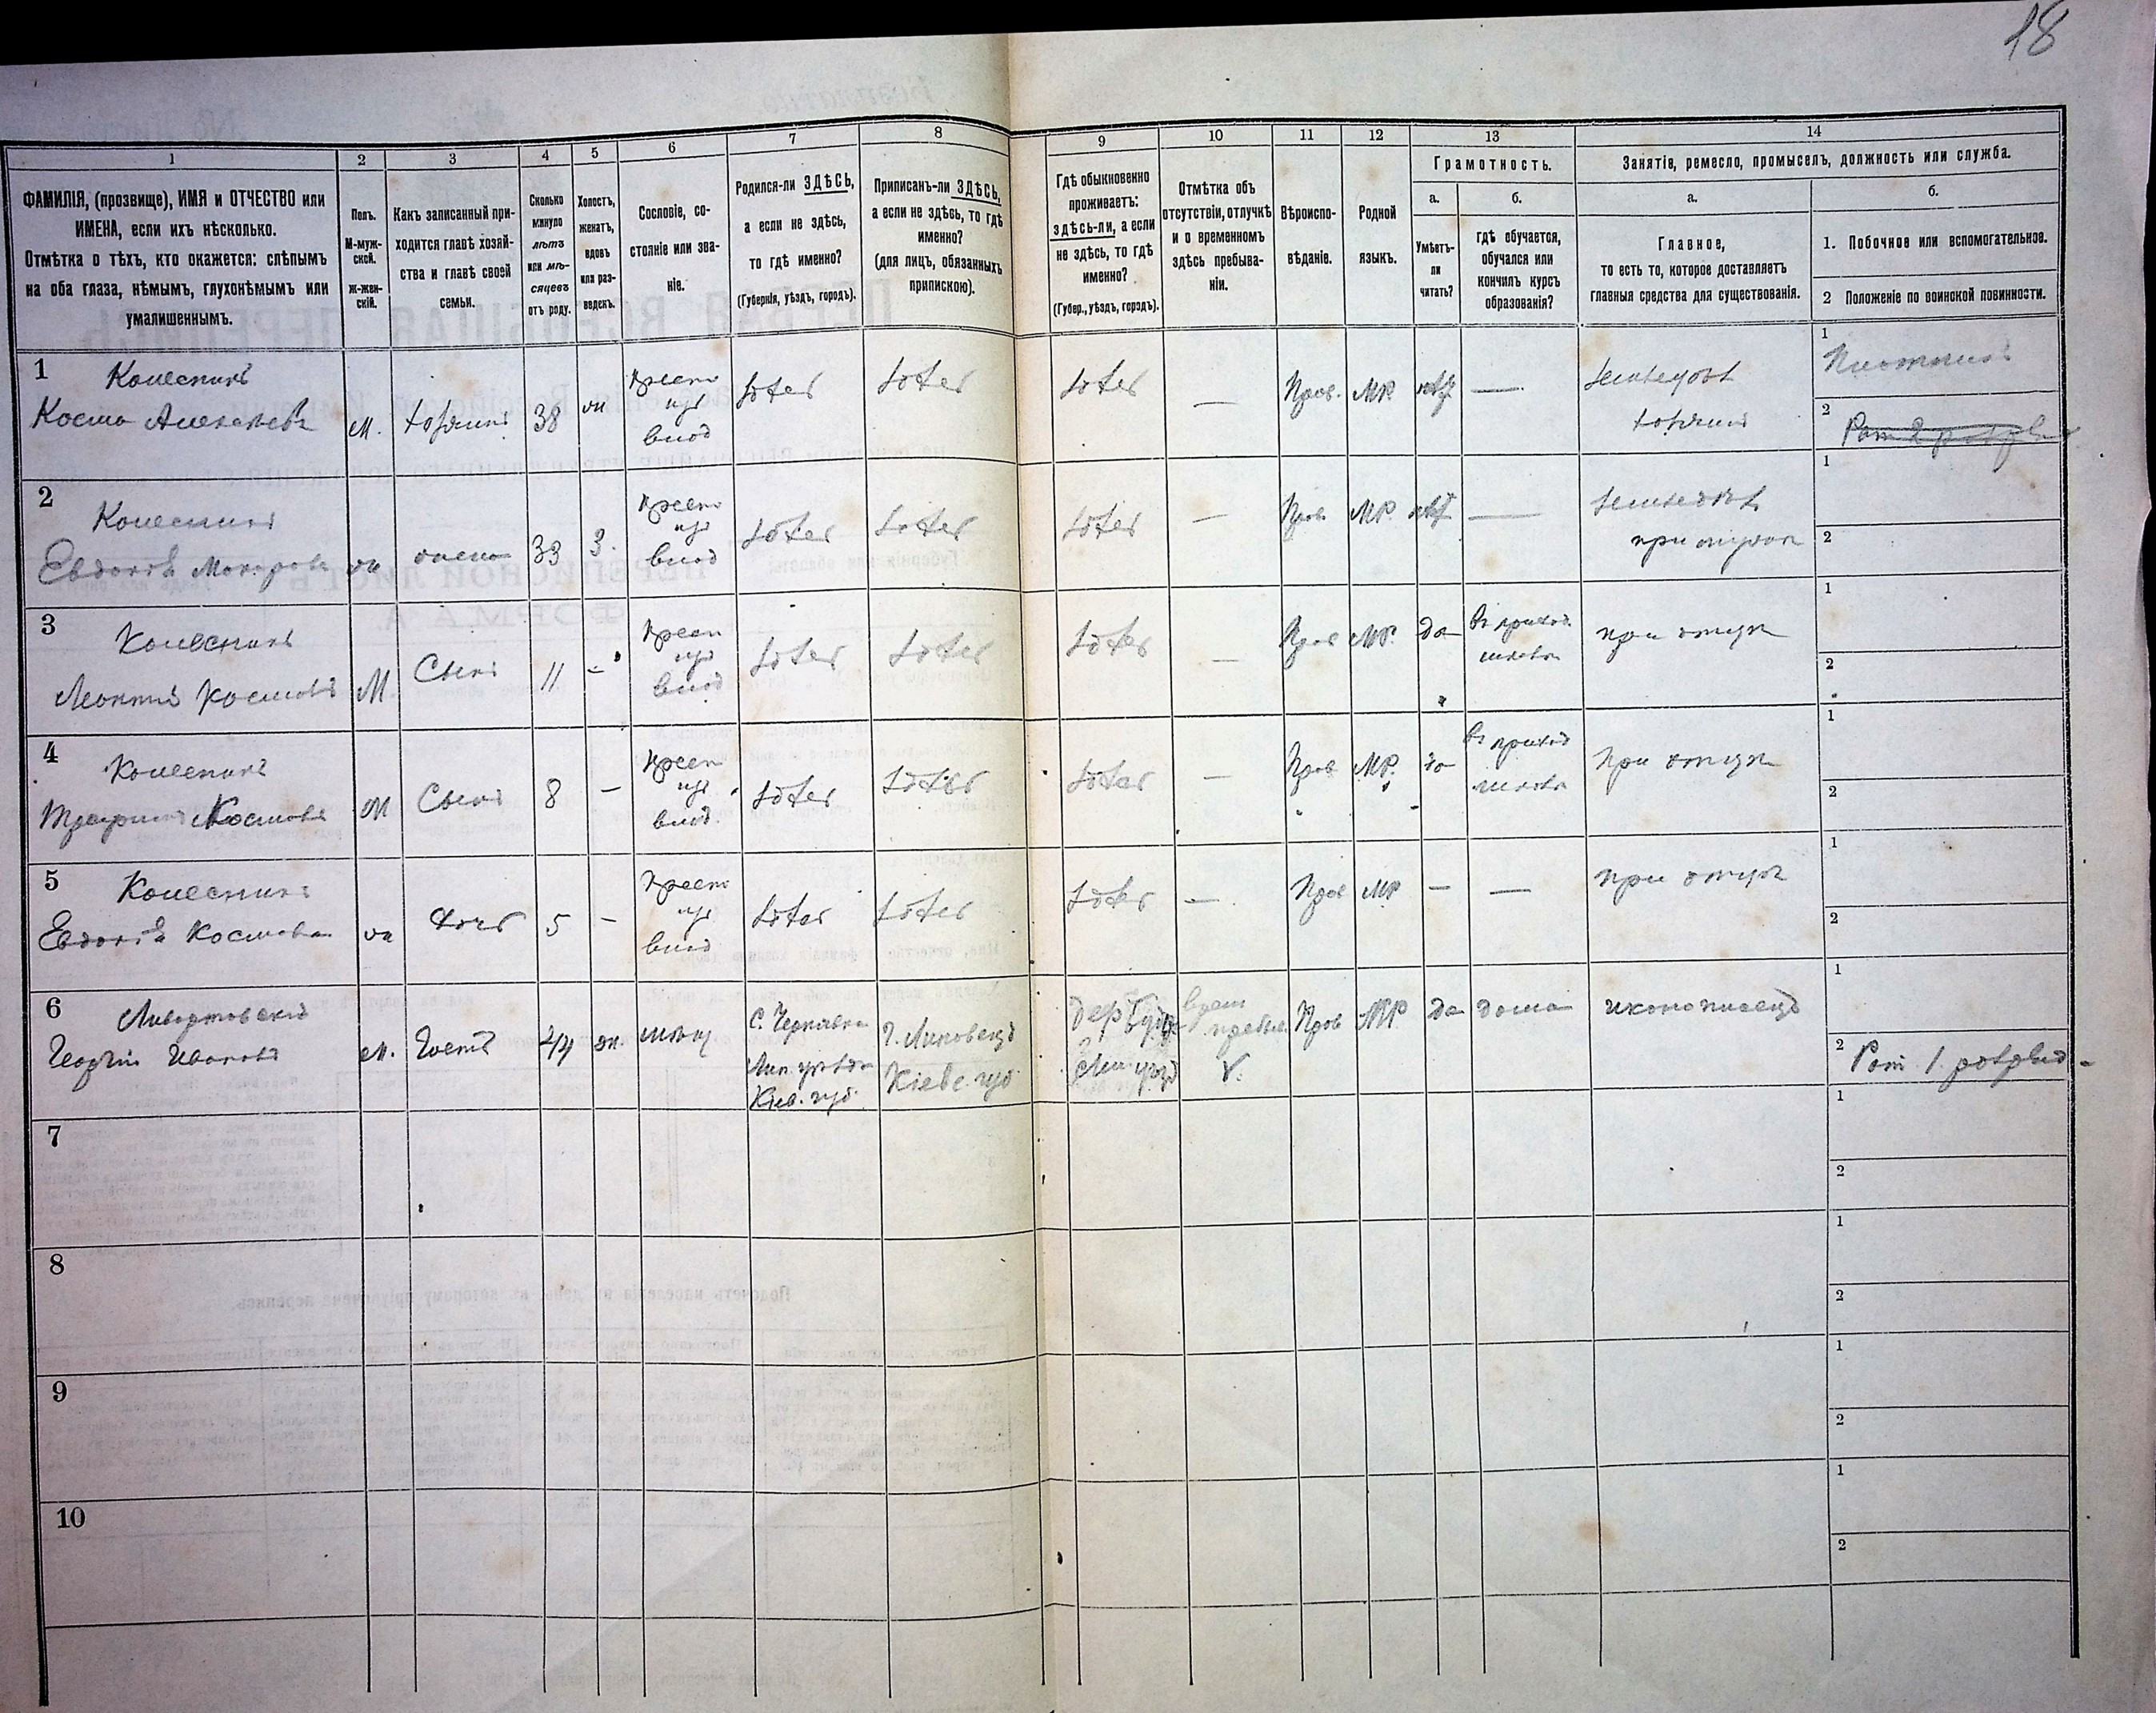 18
1
2
3
4
5
6
7
8
9
10
11
12
13
14
ФАМИЛІЯ, (прозвище), ИМЯ и ОТЧЕСТВО или
ИМЕНА, если ихъ нѣсколько.
Отмѣтка о тѣхъ, кто окажется: слѣпымъ
на оба глаза, нѣмымъ, глухонѣмымъ или
умалишеннымъ.
Полъ.
М-муж-
ской.
Ж-жен-
скій.
Какъ записанный при-
ходится главѣ хозяй-
ства и главѣ своей
семьи.
Сколько
минуло
лѣтъ
или мѣ-
сяцевъ
отъ роду.
Холостъ,
женатъ,
вдовъ
или раз-
веденъ.
Сословіе, со-
стояніе или зва-
ніе.
Родился-ли ЗДѢСЬ,
а если не здѣсь,
то гдѣ именно?
(Губернія, уѣздъ, городъ).
Приписанъ-ли ЗДѢСЬ,
а если не здѣсь, то гдѣ
именно?
(для лицъ, обязанныхъ
припискою).
Гдѣ обыкновенно
проживаетъ:
здѣсь-ли, а если
не здѣсь, то гдѣ
именно?
(Губер., уѣздъ, городъ).
Отмѣтка объ
отсутствіи, отлучкѣ
и о временномъ
здѣсь пребыва-
ніи.
Вѣроиспо-
вѣданіе.
Родной
языкъ.
Грамотность.
а.
Умѣетъ-
ли
читать?
б.
гдѣ обучается,
обучался или
кончилъ курсъ
образованія?
Занятіе, ремесло, промыселъ, должность или служба.
а.
Главное,
то есть то, которое доставляетъ
главныя средства для существованія.
б.
1. Побочное или вспомогательное.
2 Положеніе по воинской повинности.
1
Колесникъ
Косма Алексѣевъ
М.
хозяинъ
38
ж
Крест
изъ
влад
здѣсь
здѣсь
здѣсь
—
Прав.
МР.
нѣт
—
земледѣл
хозяинъ
1
Плотникъ
2
2
Колесникъ
Евдокія Макарова
ж
жена
33
З.
Крест
изъ
влад
здѣсь
здѣсь
здѣсь
—
Прав.
МР.
нѣт
—
земледѣл
при мужѣ
1
2
3
Колесникъ
Леонтій Космовъ
М
Сынъ
11
-
Крест
изъ
влад
здѣсь
здѣсь
здѣсь
—
Прав
МР.
да
въ приход.
школѣ
при отцѣ
1
2
4
Колесникъ
Космовъ
М
Сынъ
8
—
Крест
изъ
влад.
здѣсь
здѣсь
здѣсь
—
Прав
МР.
да
въ приход
школѣ
при отцѣ
1
2
5
Колесникъ
Евдокія Космова
ж
дочь
5
-
Крест
изъ
влад
здѣсь
здѣсь
здѣсь
—
Прав
МР
—
—
при отцѣ
1
2
6
Георгій Ивановъ
М.
Гость
44
ж.
с. Чернявка
Лип. уѣзда
Кіев. губ.
г. Липовецъ
Кіевс. губ.
врем
пребыв
Прав
МР.
да
дома
иконописецъ
1
2
Рат 1 разряд
7
1
2
8
1
2
9
1
2
10
1
2